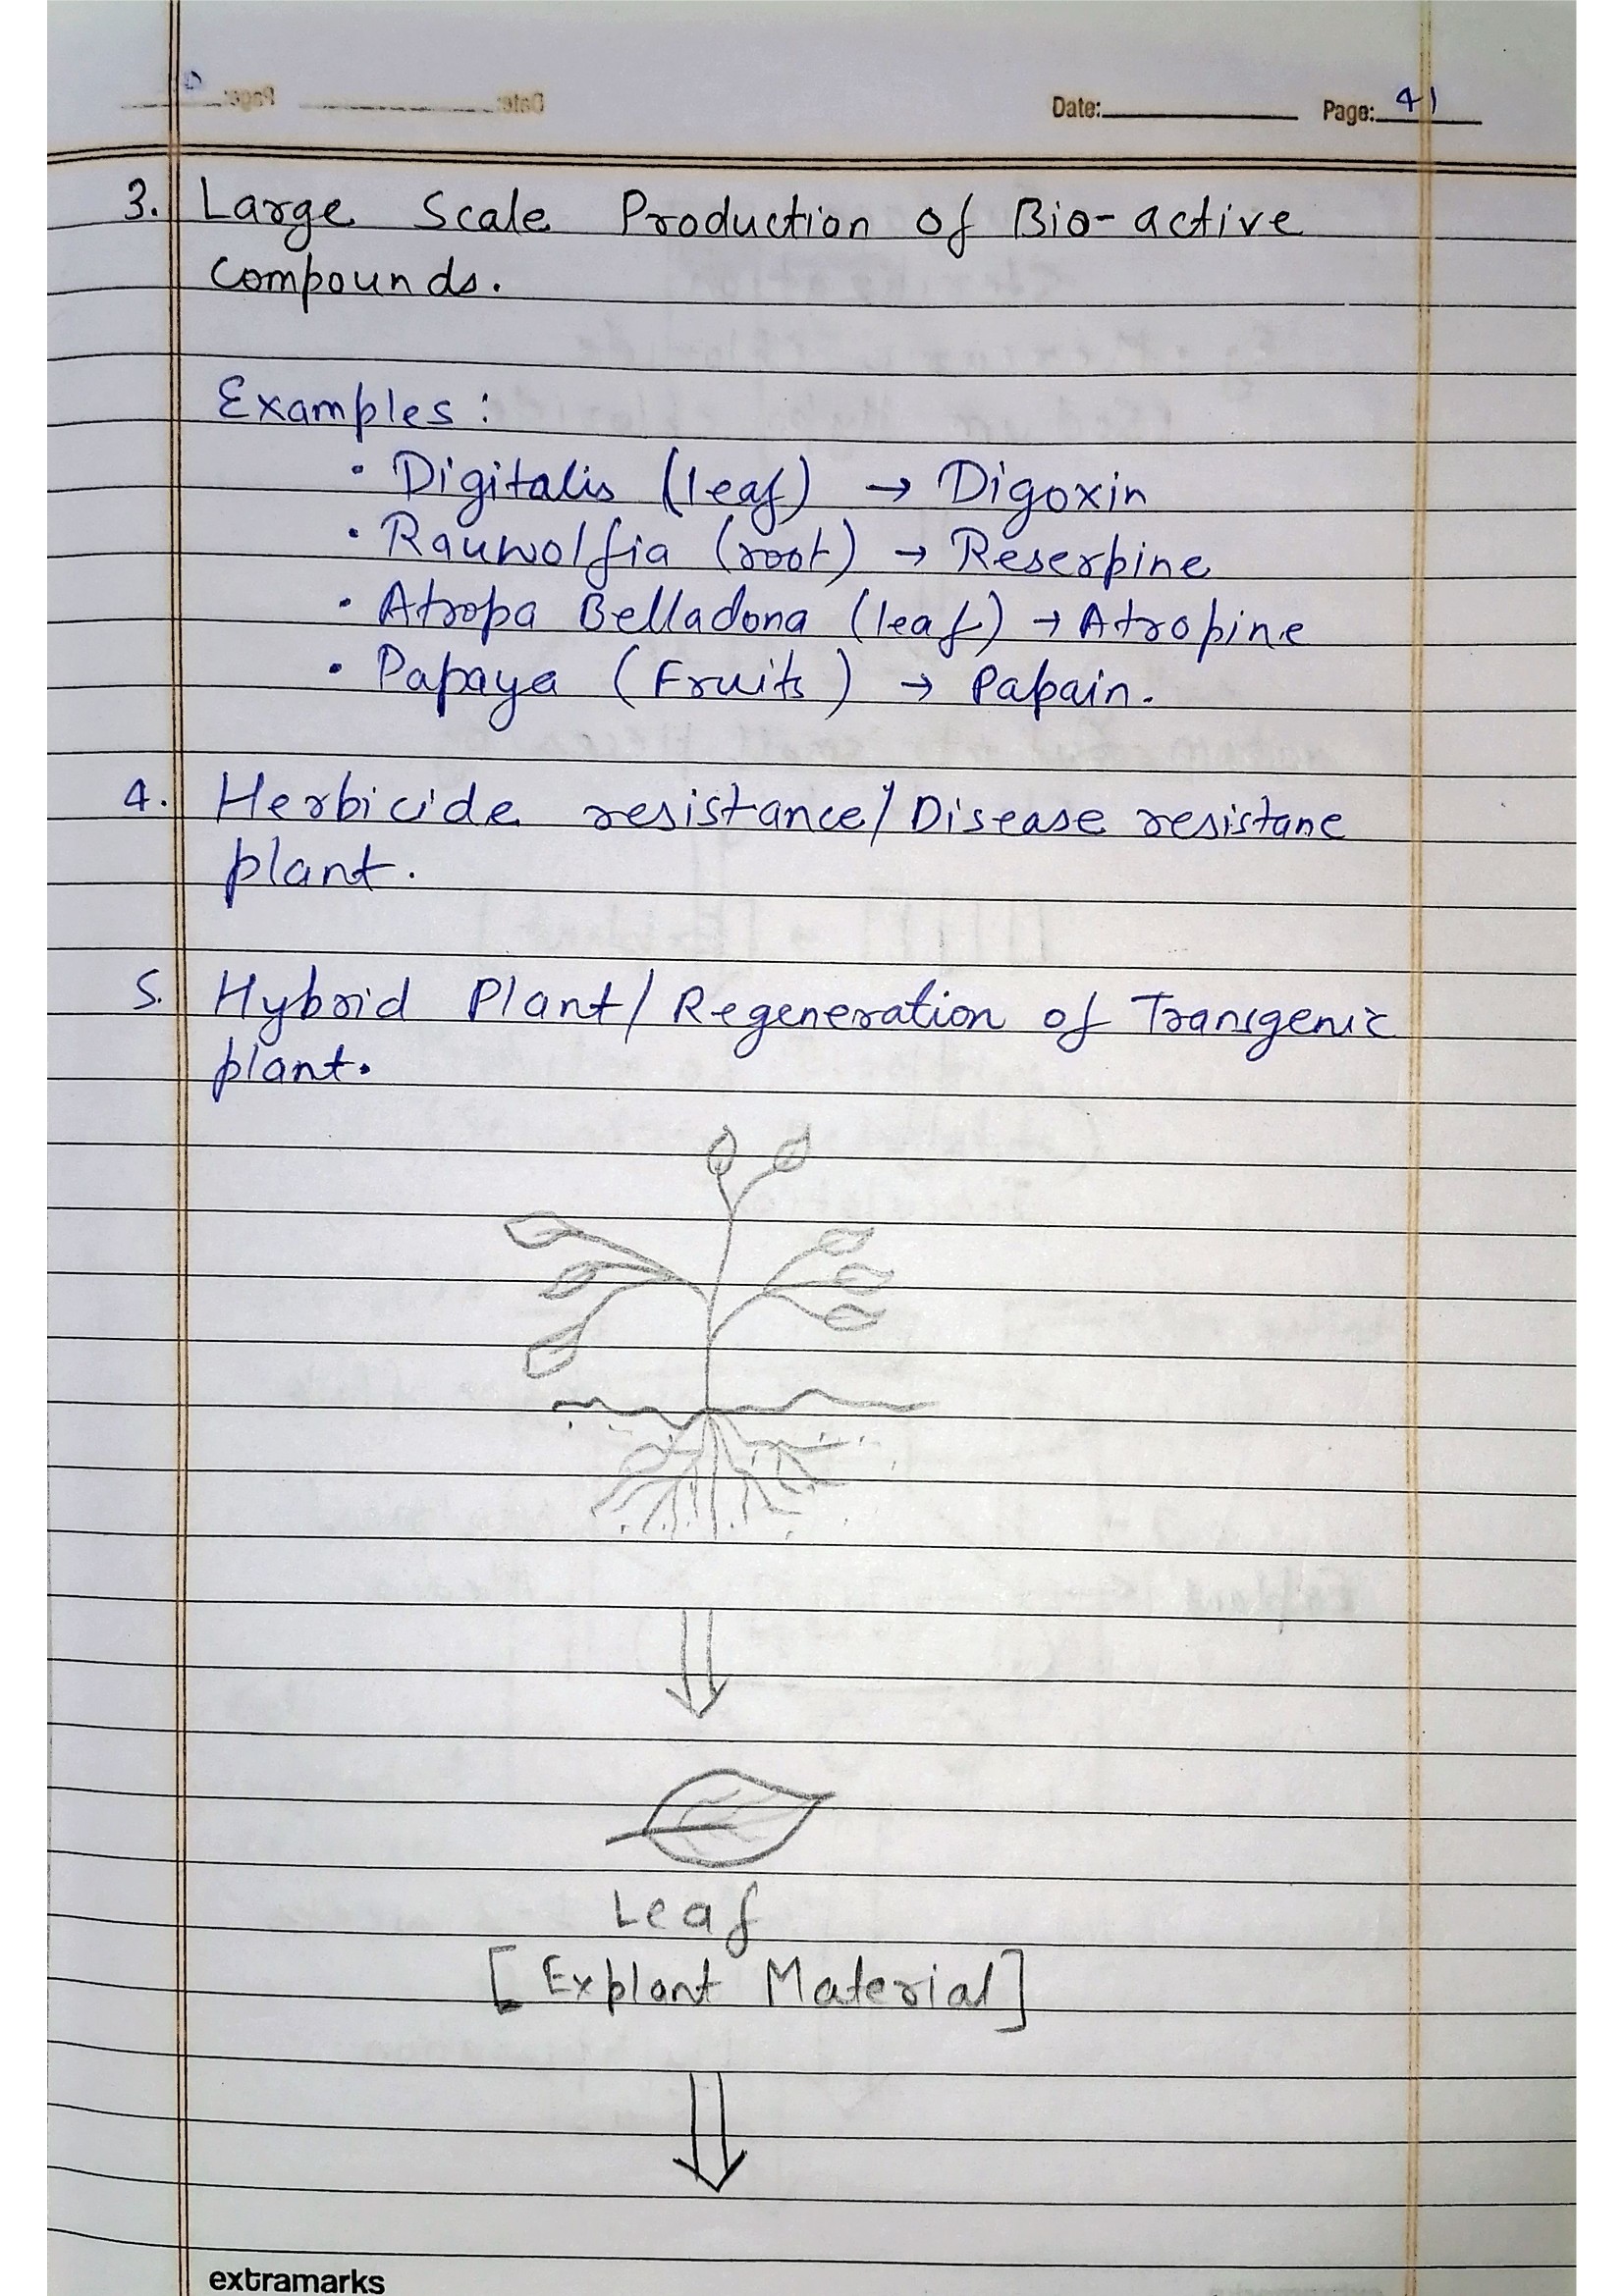 Date: Page: 41
3. Large Scale Production of Bio-active
Compounds.
Examples:
• Digitalis (leaf) → Digoxin
• Rauwolfia (root) → Reserpine
• Atropa Belladona (leaf) → Atropine
• Papaya (Fruits) → Papain.
4. Herbicide resistance/Disease resistane
plant.
5. Hybrid Plant/Regeneration of Transgenic
plant.
Leaf
[Explant Material]
extramarks